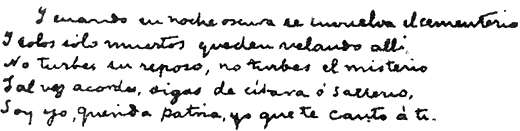 Y cuando en noche oscura se envuelva el cementerio
Y solos sólo muertos queden velando allí,
No turbes su reposo, no turbes el misterio
Tal vez acordes, oigas de cítara ó salterio,
Soy yo, querida patria, yo que te canto á ti.